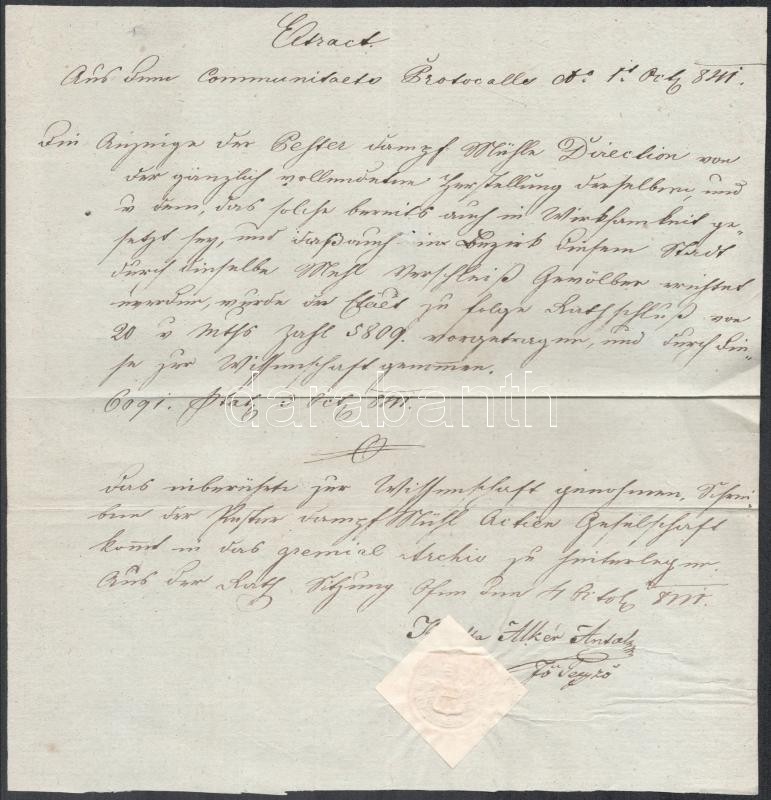 Extract.
Aus dem Communitaets Protocolle ddo 1t Octb 841.
Die Anzeige der Pester Dampf Mühle Direction von
der gänzlich vollendeten Herstellung derselben, und
v dem, das solche bereits auch in Wirksamkeit ge=
setzt sey, und daß auch im Bezirk dieser Stadt
durch dieselbe Mehl Verschleiß Gewölber errichtet
werden, wurde in zu folge Rathschluß von
20 v Mths Zahl 5809. vorgetragen, und durch die=
se zur Wissenschaft genommen.
6091. Octb 841.
darabanth
Das inberührte zur Wissenschaft genohmen, Schrei=
ben der Pester Dampf Mühl Actien Gesellschaft
kommt in das gremial Archiv zu hinterlegen.
Aus der Rath Sitzung Ofen den 4 Octob 841.
Alkér Antal